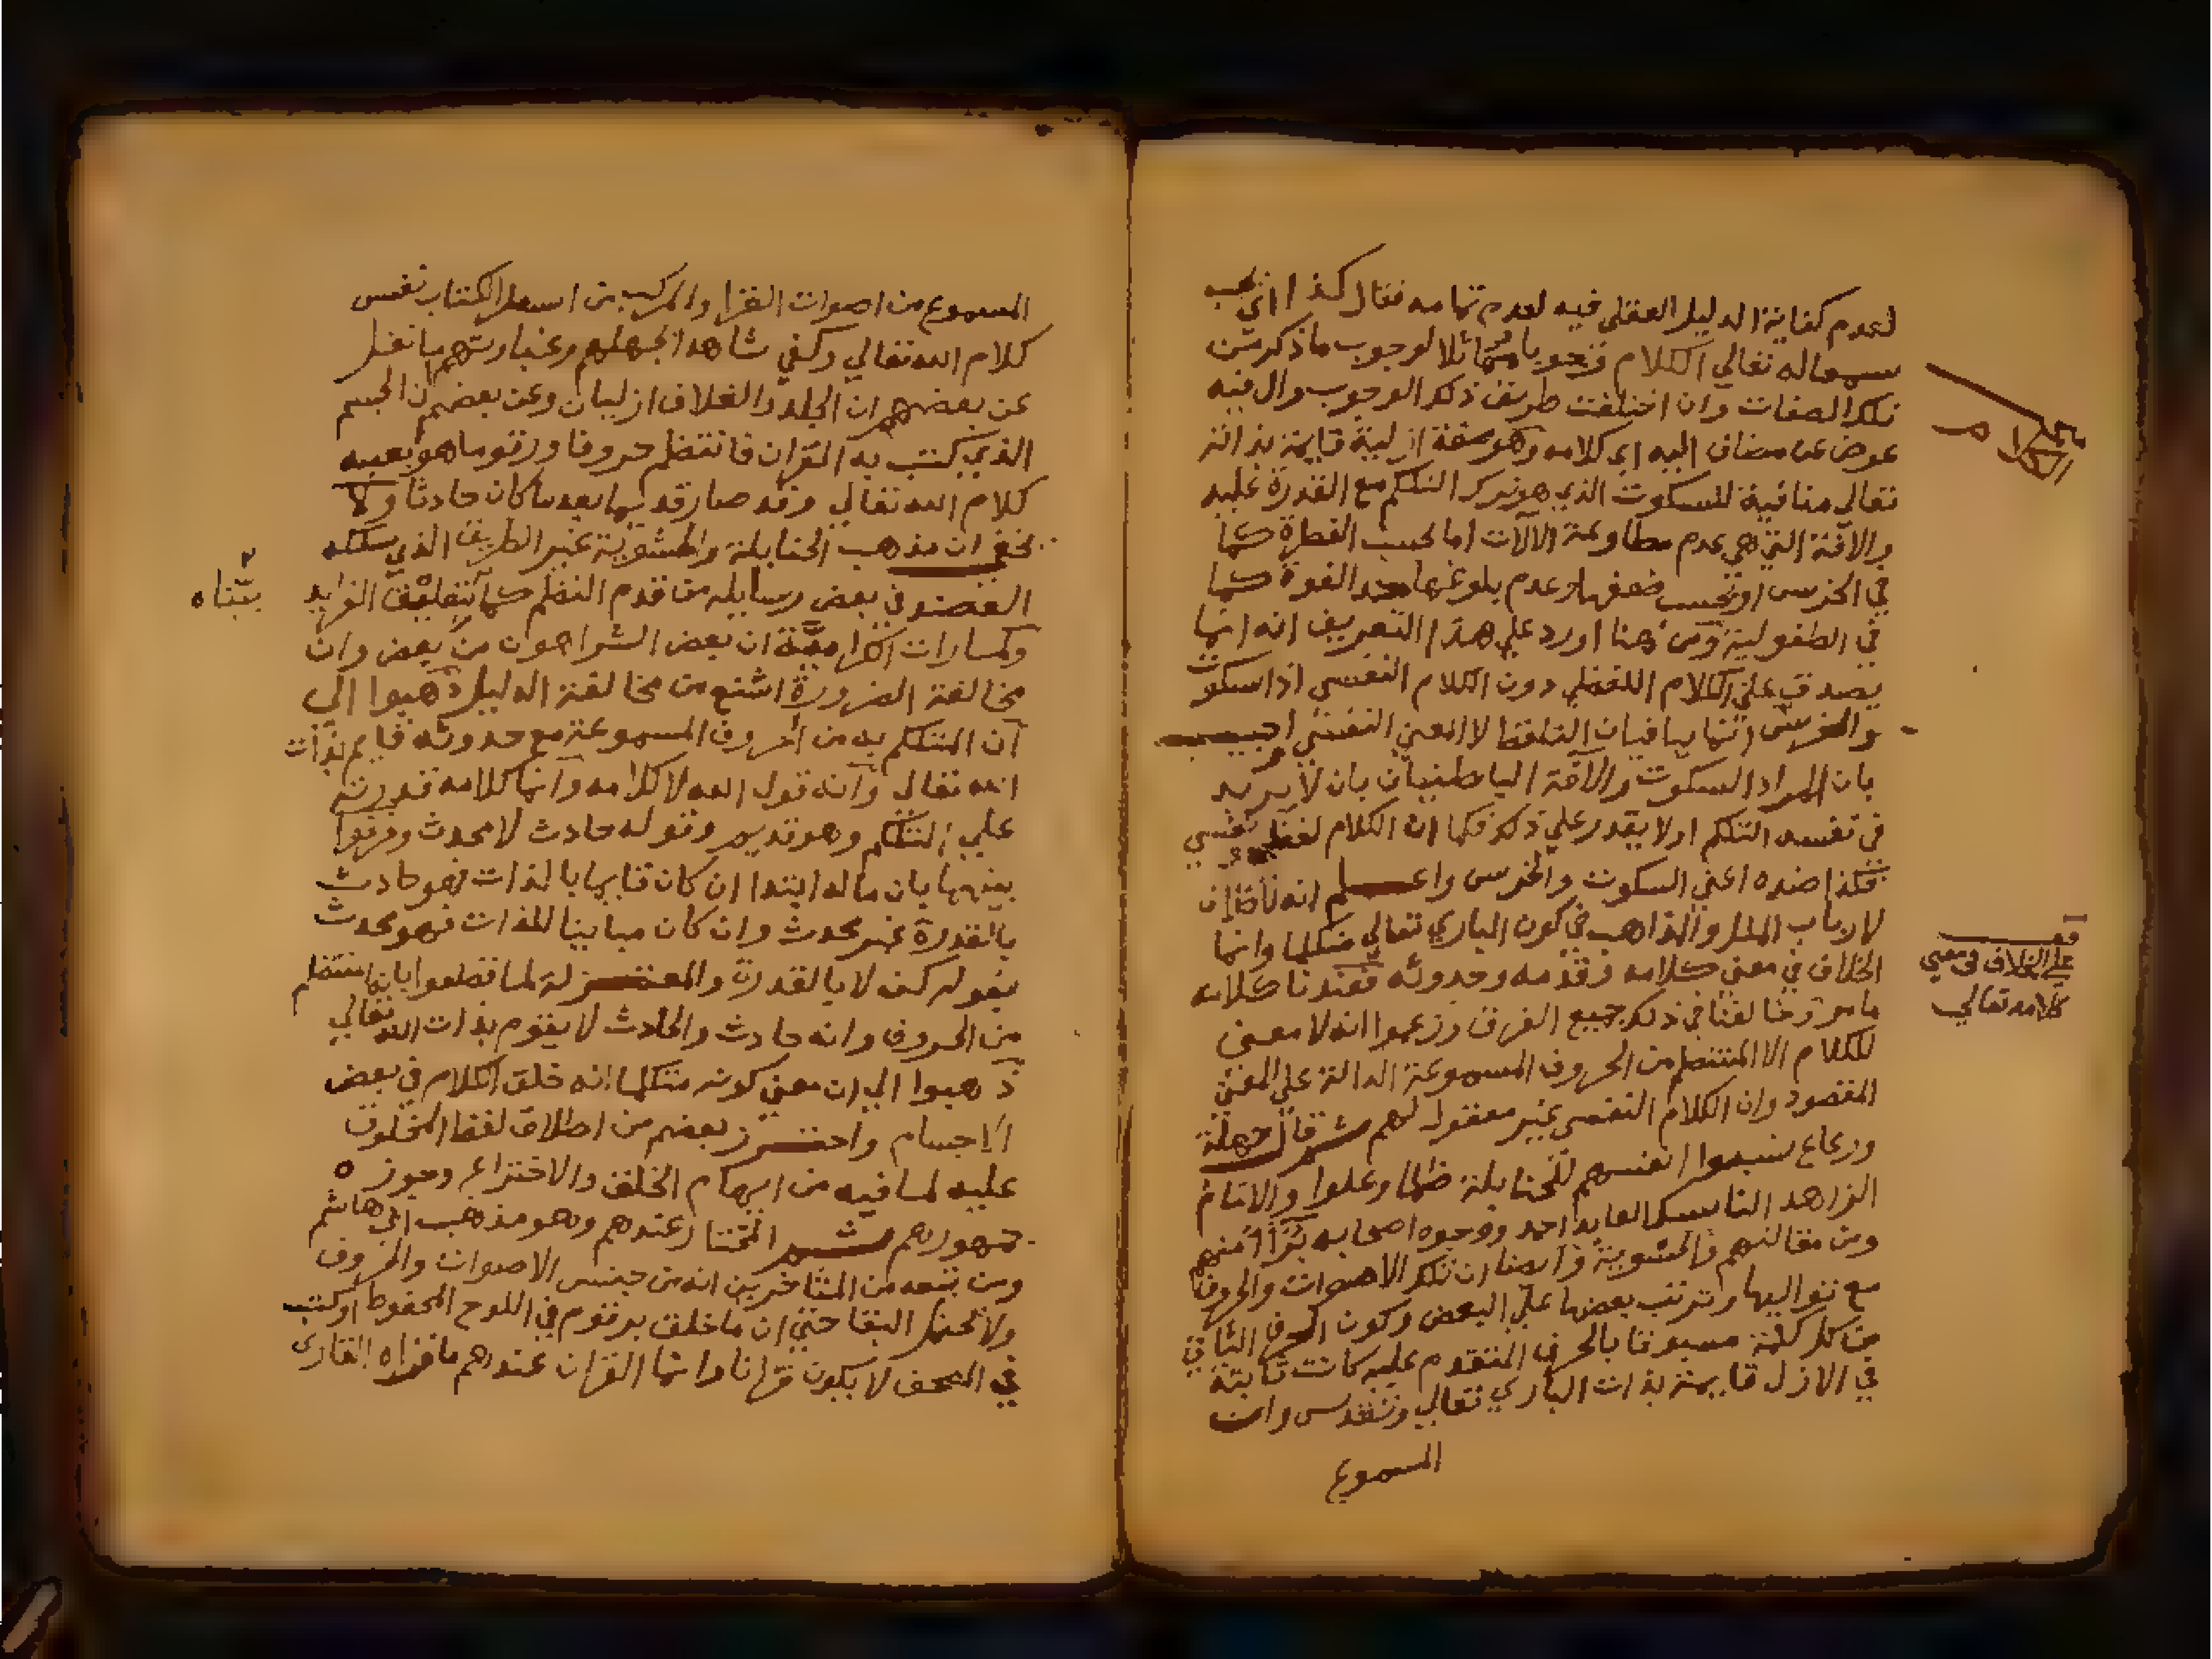 لعدم كفاية الدليل العقلي فيه لعدم تمامه فقال كذا اي يجب
سمعا له تعالي الكلام وجوبا مماثلا لوجوب ما ذكر من
تلك الصفات وان اختلفت طريق ذلك الوجوب وال فيه
عوض عن مضاف اليه اي كلامه وهو صفة ازلية قايمة بذاته
تعالي منافية للسكوت الذي هو ترك التكلم مع القدرة عليه
والافة التي هي عدم مطاوعة الالات اما بحسب الفطرة كما
في الخرس او بحسب ضعفها وعدم بلوغها حد القوة كما
في الطفولية ومن هنا اورد علي هذا التعريف انه انما
يصدق علي الكلام اللفظي دون الكلام النفسي اذ السكوت
والخرس انما ينافيان التلفظ لا المعني النفسي اجيب
بان المراد السكوت والافة الباطنيان بان لا يريد
في نفسه التكلم او لا يقدر علي ذلك فكما ان الكلام لفظي ونفسي
فكذا ضده اعني السكوت والخرس واعلم انه لا خلاف
لارباب الملل والمذاهب في كون الباري تعالي متكلما وانما
الخلاف في معني كلامه وقدمه وحدوثه فعندنا كلامه
ما مر وخالفنا في ذلك جميع الفرق وزعموا انه لا معني
للكلام الا المنتظم من الحروف المسموعة الدالة علي المعني
المقصود وان الكلام النفسي غير معقول لهم ثم قال جهلة
ورعاع نسبوا انفسهم للحنابلة ظلما وعلوا والامام
الزاهد الناسك العابد احمد ووجوه اصحابه برآء منهم
ومن مقالتهم والحشوية ايضا ان تلك الاصوات والحروف
مع تواليها وترتب بعضها علي البعض وكون الحرف الثاني
من كل كلمة مسبوقا بالحرف المتقدم عليه كانت ثابتة
في الازل قايمة بذات الباري تعالي وتقدس وان
المسموع
الكلام
علي الخلاف في معني
كلامه تعالي
المسموع من اصوات القرا والمركب من اسطر الكتاب نفس
كلام الله تعالي وكفي شاهدا لجهلهم وغباوتهم ما نقل
عن بعضهم ان الجلد والغلاف ازليان وعن بعضهم ان الجسم
الذي كتب به القران فانتظم حروفا ورقوما هو بعينه
كلام الله تعالي وقد صار قديما بعد ما كان حادثا ولا
يخفي ان مذهب الحنابلة والحشوية غير الطريق الذي سلكه
العضد في بعض رسايله من قدم النظم كما بتعليق الفرايد
بيناه
ولما رات الكرامية ان بعض الشر اهون من بعض وان
مخالفة الضرورة اشنع من مخالفة الدليل ذهبوا الي
ان المتكلم به من الحروف المسموعة مع حدوثه قايم بذات
الله تعالي وانه قول الله لا كلامه وانما كلامه قدرته
علي التكلم وهو قديم وقوله حادث لا محدث وفرقوا
بينهما بان ما له ابتدا ان كان قايما بالذات فهو حادث
بالقدرة غير محدث وان كان مباينا للذات فهو محدث
بقوله كن لا بالقدرة والمعتزلة لما قطعوا بانه المنتظم
من الحروف وانه حادث والحادث لا يقوم بذات الله تعالي
ذهبوا الي ان معني كونه متكلما انه خلق الكلام في بعض
الاجسام واحترز بعضهم من اطلاق لفظ المخلوق
عليه لما فيه من ايهام الخلق والاختراع وجوزه
جمهورهم ثم المختار عندهم وهو مذهب ابي هاشم
ومن تبعه من المتاخرين انه من جنس الاصوات والحروف
ولا يحتمل البقا حتي ان ما خلق برقوم في اللوح المحفوظ او كتب
في المصحف لا يكون قرانا وانما القران عندهم ما قراه القاري